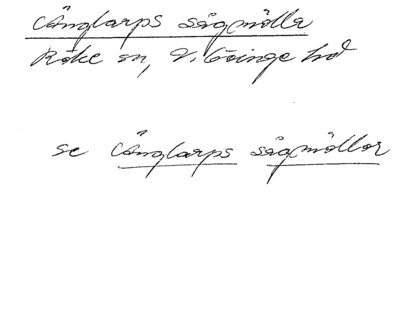 Änglarps sågmölla
Röke sn, V. Göinge hd
se Änglarps sågmöllor